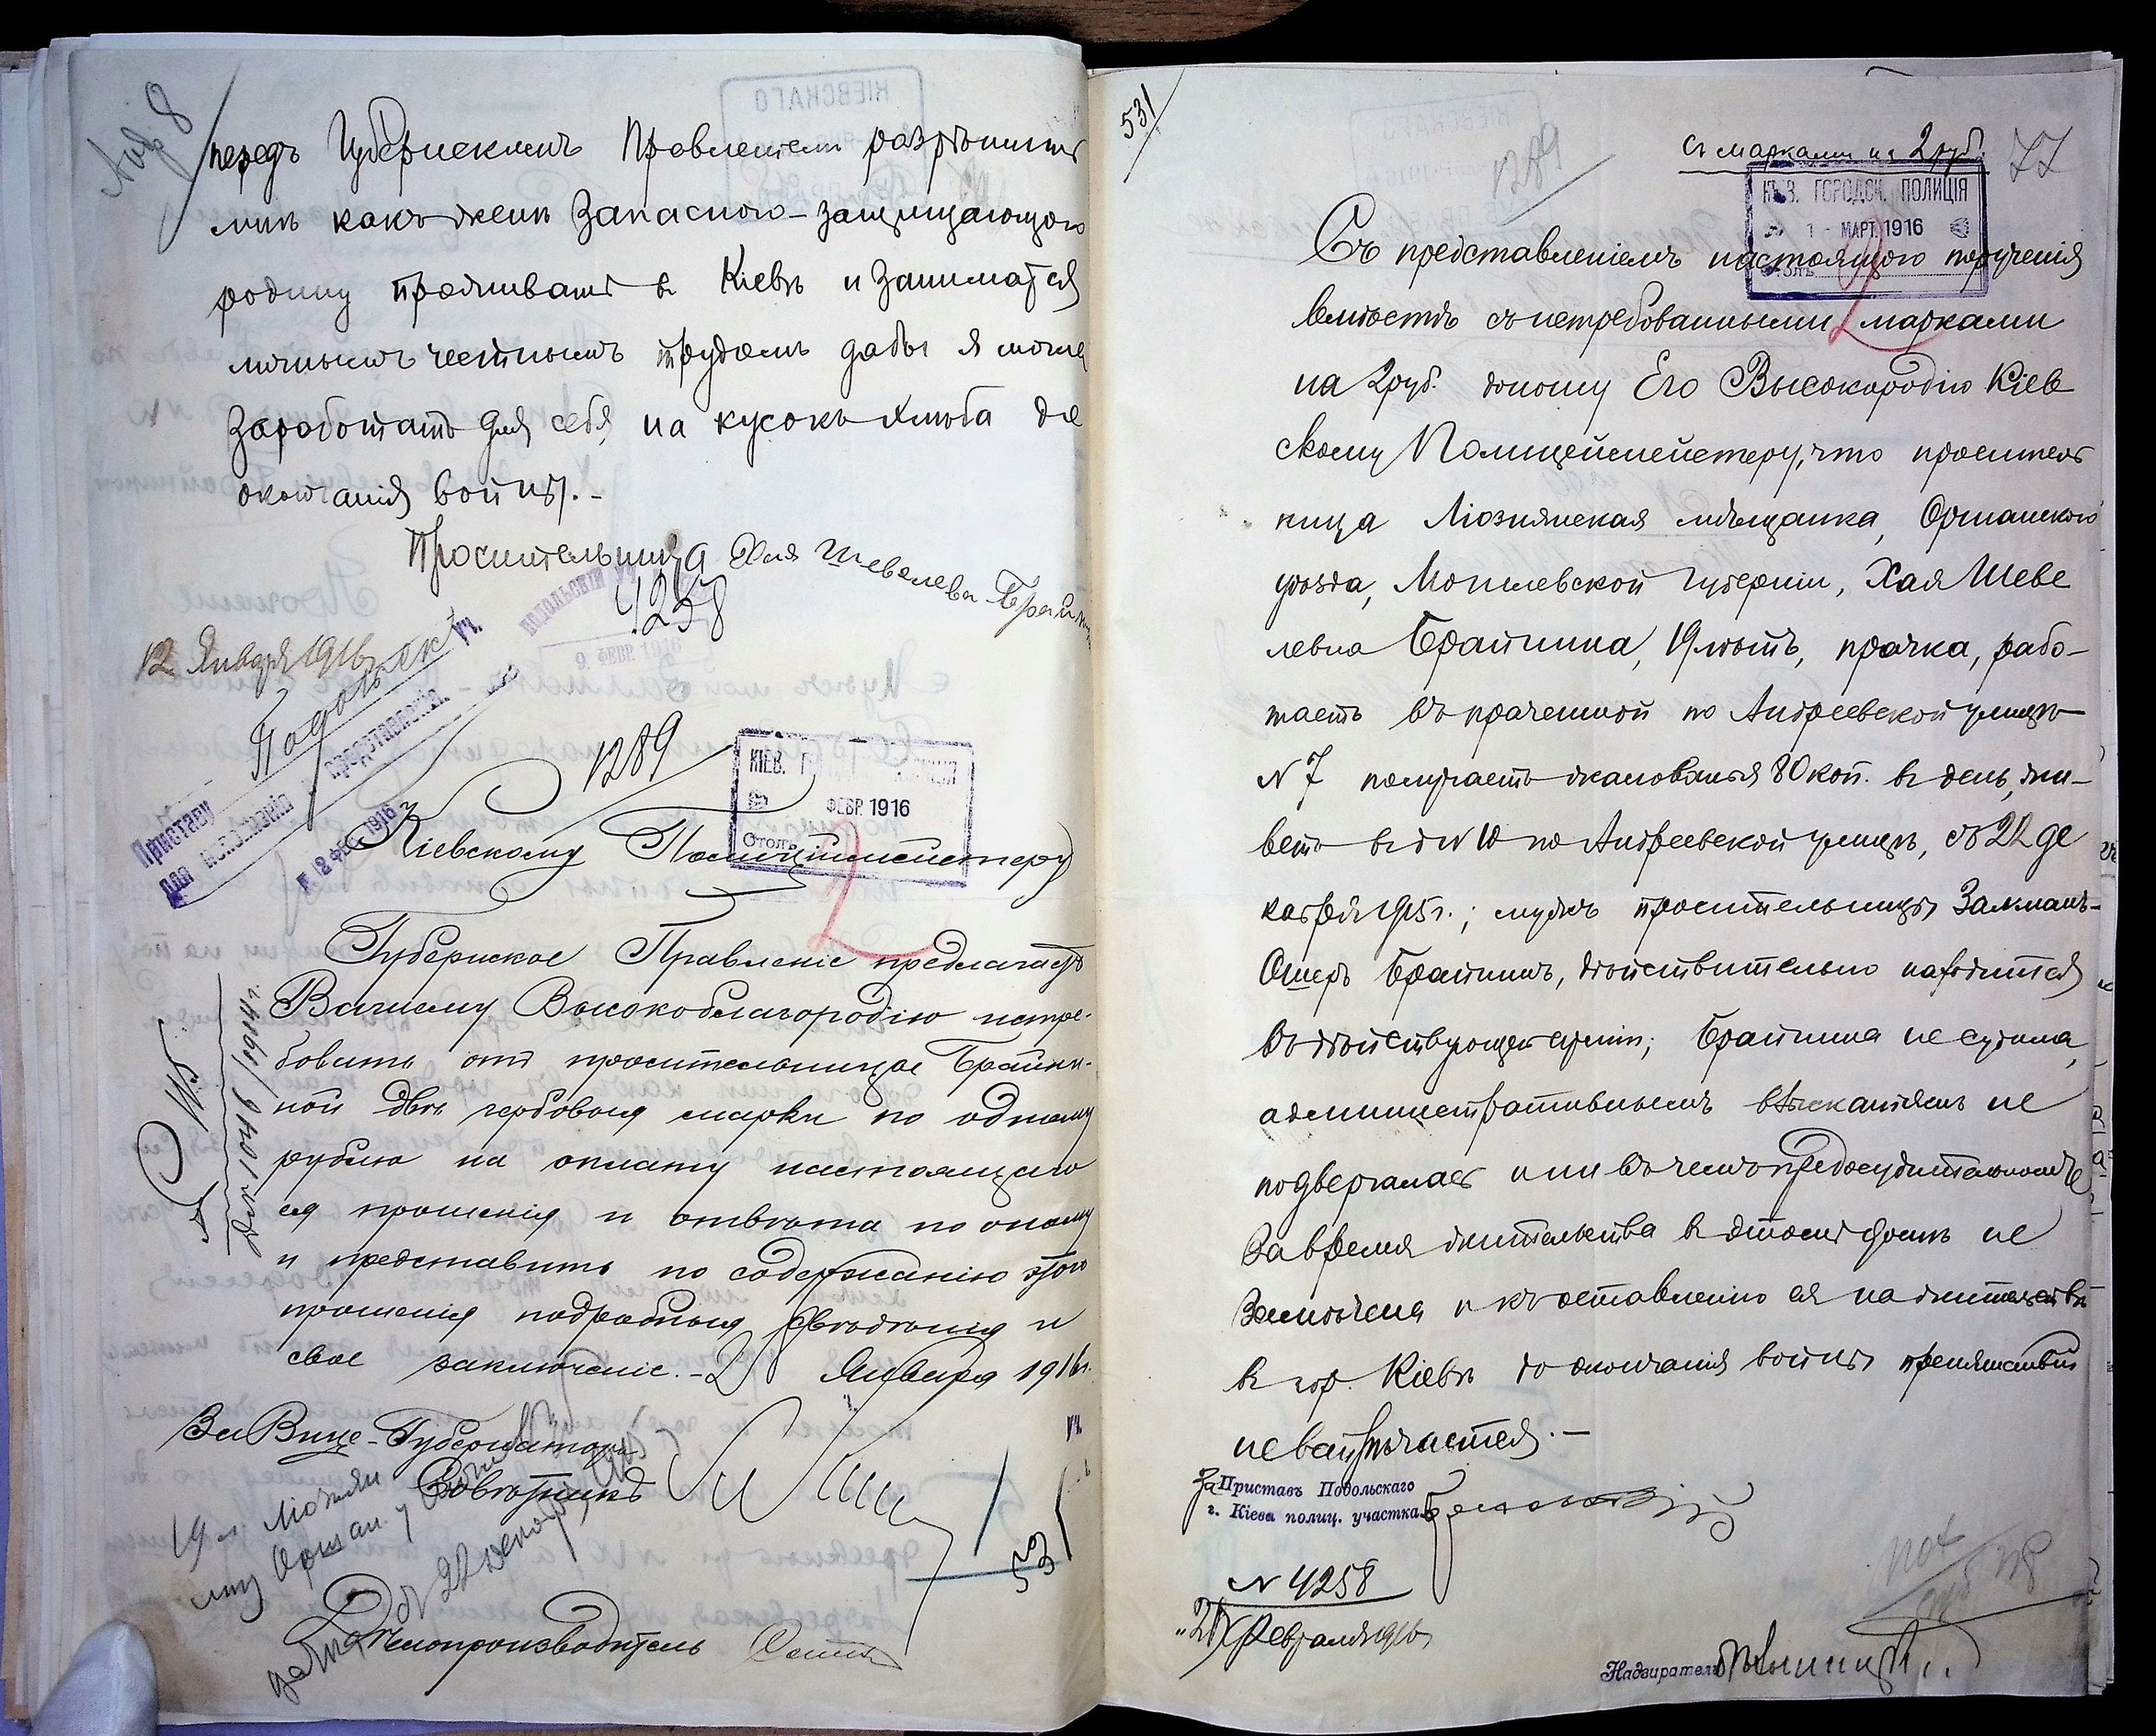 передъ Губернскимъ Правленіемъ разрѣшить
мнѣ какъ женѣ Запасного - защищающаго
родину проживать въ Кіевѣ и Заниматся
личнымъ честнымъ трудомъ дабы я могла
Заработать для себя на кусокъ хлѣба до
окончанія войны.-
Просительница Хая Шевелева Брайнина
4258
9. ФЕВР. 1916
12 Января 1916
Приставу Подольск. уч.
Для исполненія и представленія.
12 ФЕВ. 1916
1289
КІЕВ. Г
ФЕВР. 1916
Столъ
2
Кіевскому Полиціймейстеру
Губернское Правленіе предлагаетъ
Вашему Высокоблагородію истре-
бовать отъ просительницы Брайни-
ной двѣ гербовыя марки по одному
рублю на оплату настоящаго
ея прошенія и отвѣта по оному
и представить по содержанію этого
прошенія подробныя свѣдѣнія и
свое заключеніе.- 28 Января 1916 г.
За Вице-Губернатора
Совѣтникъ
531
Дѣлопроизводитель
531
1289
съ марками на 2 руб.
77
КІЕВ. ГОРОДСК. ПОЛИЦІЯ
1 - МАРТ. 1916
Столъ
2
Съ представленіемъ настоящаго порученія
вмѣстѣ съ истребованными марками
на 2 руб. доношу Его Высокородію Кіев
скому Полицеймейстеру, что проситель
ница Ліознянская мѣщанка, Оршанского
уѣзда, Могилевской губерніи, Хая Шеве
левна Брайнина, 19 лѣтъ, прачка, рабо-
таетъ въ прачешной по Андреевской улицѣ
N 7 получаетъ жалованья 80 коп. въ день, жи-
ветъ въ д N 10 по Андреевской улицѣ, съ 22 де
кабря 1915 г.; мужъ просительницы Залманъ-
Ошеръ Брайнинъ, дѣйствительно находится
въ дѣйствующей арміи; Брайнина не судима,
административнымъ взысканіямъ не
подвергалась и ни въ чемъ предосудительномъ
За время жительства въ этомъ домѣ не
Замѣчена и къ оставленію ея на жительствѣ
въ гор. Кіевѣ до окончанія войны препятствій
не встрѣчается.-
За Приставъ Подольскаго
г. Кіева полиц. участка
N 4258
"28" Февраля 1916
Надзиратель